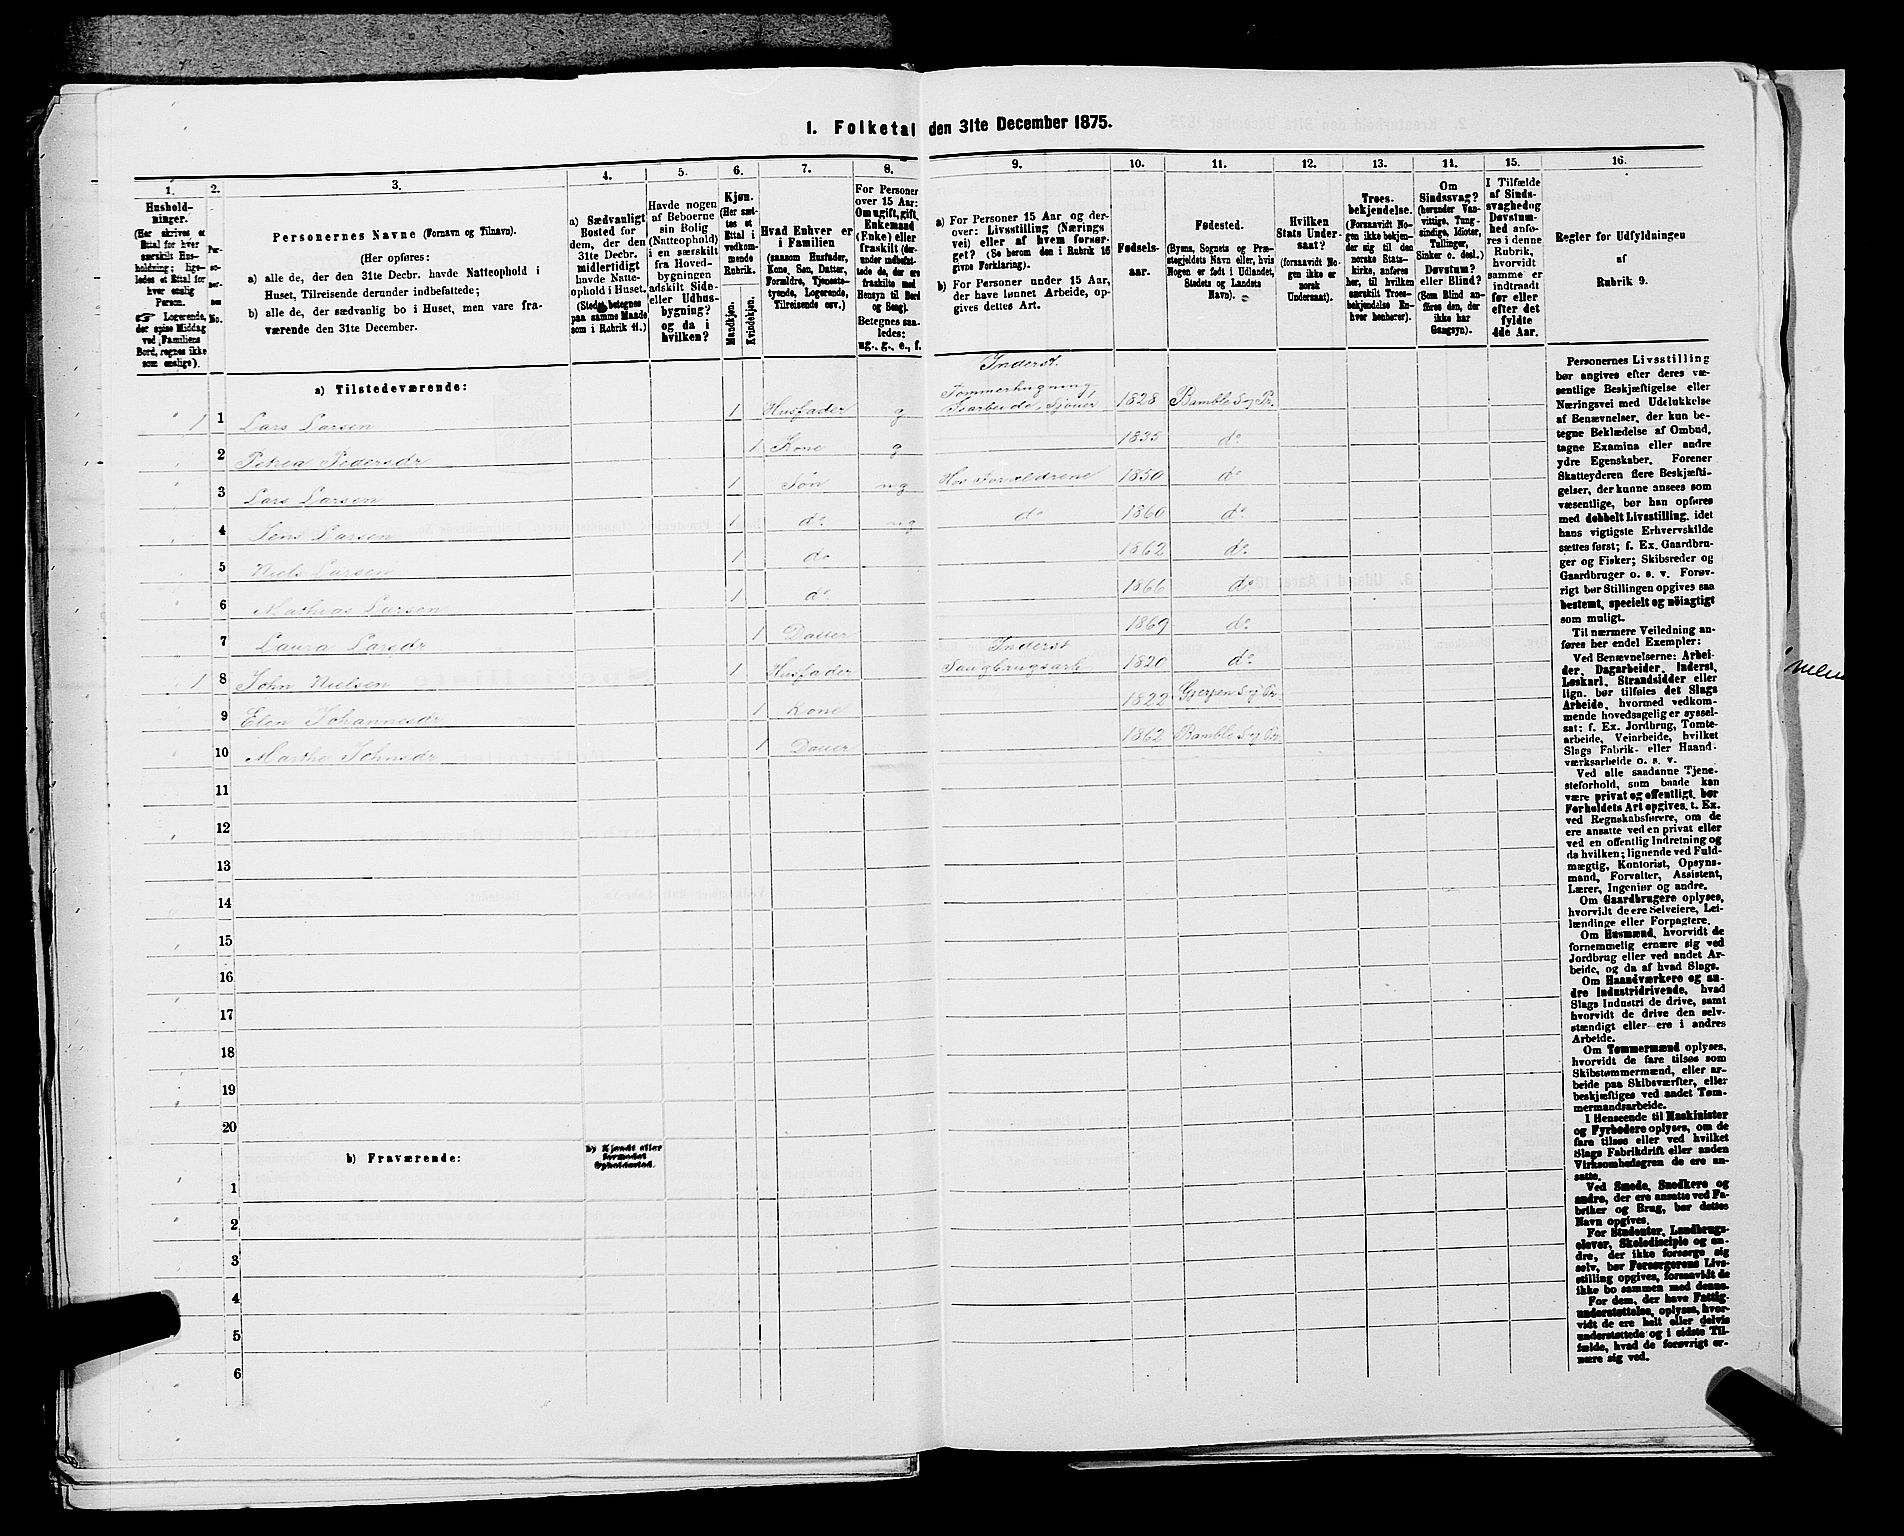 1. Folketal den 31te December 1875.
1. 2. 3. 4. 5. 6. 7. 8. 9. 10. 11. 12. 13. 14. 15. 16.
Hushold-
ninger.
(Her skrives et
Ettal for hver
særskilt Hus-
holdning; lige-
ledes et Ettal for
hver enslig
Person.
☞ Logerende,
der spise Middag
ved Familiens
Bord, regnes ikke
som enslige).
Personernes Navne (Fornavn og Tilnavn).
(Her opføres:
a) alle de, der den 31te Decbr. havde Natteophold i
Huset, Tilreisende derunder indbefattede;
b) alle de, der sædvanlig bo i Huset, men vare fra-
værende den 31te December.
a) Sædvanligt
Bosted for
dem, der den
31te Decbr.
midlertidigt
havde Natte-
ophold i Huset.
(Stedet betegnes
paa samme Maade
som i Rubrik 11.)
Havde nogen
af Beboerne
sin Bolig
(Natteophold)
i en særskilt
fra Hoved-
bygningen
adskilt Side-
eller Udhus-
bygning?
og da i
hvilken?
Kjøn.
(Her sæt-
tes et
Ettal i
vedkom-
mende
Rubrik.
Mandkjøn.
Kvindekjøn.
Hvad Enhver er
i Familien
(saasom Husfader,
Kone, Søn, Datter,
Forældre, Tjeneste-
tyende, Logerende,
Tilreisende osv.)
For Personer
over 15 Aar:
Om ugift, gift,
Enkemand
(Enke) eller
fraskilt (der-
under indbefat-
tede de, der ere
fraskilte med
Hensyn til Bord
og Seng).
Betegnes saa-
ledes:
ug., g., e., f.
a) For Personer 15 Aar og der-
over: Livsstilling (Nærings
vei) eller af hvem forsør-
get? (Se herom den i Rubrik 16
givne Forklaring).
b) For Personer under 15 Aar,
der have lønnet Arbeide, op-
gives dettes Art.
Fødsels-
aar.
Fødested.
(Byens, Sognets og Præ-
stegjeldets Navn eller, hvis
Nogen er født i Udlandet,
Stedets og Landets
Navn).
Hvilken
Stats Under-
saat?
(forsaavidt No-
gen ikke er
norsk
Undersaat).
Troes-
bekjendelse.
(Forsaavidt No-
gen ikke bekjen-
der sig til den
norske Stats-
kirke, anføres
her, til hvilken
særskilt Troes-
bekjendelse En-
hver henhører).
Om
Sindssvag?
(herunder Van-
vittige, Tung-
sindige, Idioter,
Tullinger,
Sinker o. desl.)
Døvstum?
eller Blind?
(Som Blind an-
føres den, der
ikke har
Gangsyn).
I Tilfælde
af Sinds-
svaghed og
Døvstum-
hed anfø-
res i denne
Rubrik,
hvorvidt
samme er
indtraadt
før eller
efter det
fyldte
4de Aar.
Regler for Udfyldningen
af
Rubrik 9.
a) Tilstedeværende:
Inderst.
Tømmerhugning,
1 1 Lars Larsen 1 Husfader g Isarbeide, Sjouer 1828 Bamble S og Pr.
2 Petrea Pedersdr 1 Kone g 1835 do
3 Lars Larsen 1 Søn ug Hos Forældrene 1850 do
4 Jens Larsen 1 do ug do 1860 do
5 Niels Larsen 1 do 1862 do
6 Mathias Larsen 1 do 1866 do
7 Laura Larsdr 1 Datter 1869 do
Inderst
1 8 John Nielsen 1 Husfader Saugbrugsarb 1820 do
9 Elen Johannesdr 1 Kone 1822 Gjerpen S og Pr
10 Marthe Johnsdr 1 Datter 1862 Bamble S og Pr
11
12
13
14
15
16
17
18
19
20
b) Fraværende:
b) Kjendt eller
formodet
Opholdssted.
1
2
3
4
5
6
Personernes Livsstilling
bør angives efter deres væ-
sentlige Beskjæftigelse eller
Næringsvei med Udelukkelse
af Benævnelser, der kun be-
tegne Beklædelse af Ombud,
tagne Examina eller andre
ydre Egenskaber. Forener
Skatteyderen flere Beskjæfti-
gelser, der kunne ansees som
væsentlige, bør han opføres
med dobbelt Livsstilling, idet
hans vigtigste Erhvervskilde
sættes først; f. Ex. Gaardbru-
ger og Fisker; Skibsreder og
Gaardbruger o. s. v. Forøv-
rigt bør Stillingen opgives saa
bestemt, specielt og nøiagtigt
som muligt.
Til nærmere Veiledning an-
føres her endel Exempler:
Ved Benævnelserne: Arbei-
der, Dagarbeider, Inderst,
Løskarl, Strandsidder eller
lign. bør tilføies det Slags
Arbeide, hvormed vedkom-
mende hovedsagelig er syssel-
sat; f. Ex. Jordbrug, Tomte-
arbeide, Veiarbeide, hvilket
Slags Fabrik- eller Haand-
værksarbeide o. s. v.
Ved alle saadanne Tjene-
steforhold, som baade kan
være privat og offentligt, bør
Forholdets Art opgives, t. Ex.
ved Regnskabsførere, om de
ere ansatte ved en privat eller
ved en offentlig Indretning og
da hvilken; lignende ved Fuld-
mægtig, Kontorist, Opsyns-
mand, Forvalter, Assistent,
Lærer, Ingeniør og andre.
Om Gaardbrugere oplyses,
hvorvidt de ere Selveiere, Lei-
lændinge eller Forpagtere.
Om Husmænd, hvorvidt de
fornemmelig ernære sig ved
Jordbrug eller ved andet Ar-
beide, og da af hvad Slags.
Om Haandværkere og an-
dre Industridrivende, hvad
Slags Industri de drive, samt
hvorvidt de drive den selv-
stændigt eller ere i andres
Arbeide.
Om Tømmermænd oplyses,
hvorvidt de fare tilsøs som
Skibstømmermænd, eller ar-
beide paa Skibsværfter, eller
beskjæftiges ved andet Tøm-
mermandsarbeide.
I Henseende til Maskinister
og Fyrbødere oplyses, om de
fare tilsøs eller ved hvilket
Slags Fabrikdrift eller anden
Virksomhedsgren de ere an-
satte.
Ved Smede, Snedkere og
andre, der ere ansatte ved Fa-
briker og Brug, bør dettes
Navn opgives.
For Studenter, Landbrugs-
elever, Skoledisciple og an-
dre, der ikke forsørge sig
selv, bør Forsørgerens Livs-
stilling opgives, forsaavidt de
ikke bo sammen med denne.
For dem, der have Fattig-
understøttelse, oplyses, hvor-
vidt de ere helt eller delvis
understøttede og i sidste Til-
fælde, hvad de forøvrigt er-
nære sig ved.